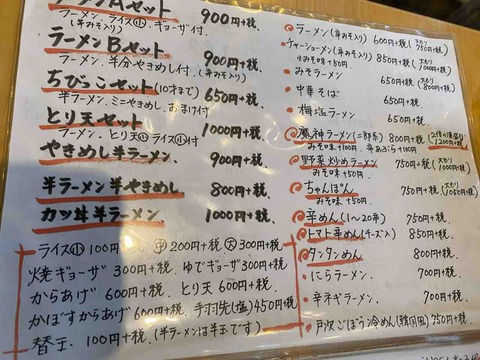 ラーメンAセット 900円+税
ラーメン、ライス小、ギョーザ付
(辛みそ入り)
ラーメンBセット 900円+税
ラーメン、半分やきめし付(辛みそ入り)
ちびっこセット(10才まで) 650円+税
半ラーメン、ミニやきめし、おまけ付
とり天セット 1000円+税
ラーメン、とり天小 ライス小付
やきめし半ラーメン 900円+税
半ラーメン半やきめし 800円+税
カツ丼半ラーメン 1000円+税
ライス小100円 中200円+税 大300円+税
焼ギョーザ300円+税、ゆでギョーザ300円+税
からあげ600円+税、とり天600円+税
かぼすからあげ600円+税、手羽先(塩)450円+税
替玉、100円+税(半ラーメンは半玉です)
ラーメン(辛みそ入り) 600円+税(大もり750円+税)
チャーシューメン(辛みそ入り) 850円+税(大もり1000円+税)
みそ味+50円
みそラーメン 650円+税(大もり800円+税)
中華そば 650円+税
梅塩ラーメン 650円+税
魔神ラーメン(二郎系) 800円+税
1200円+税
みそ味+100円 辛あぶら+100円
野菜炒めラーメン 750円+税(大もり1000円+税)
みそ味+50円
ちゃんぽん 750円+税(大もり1050円+税)
みそ味+50円
辛めん(1〜20辛) 750円+税
トマト辛めん(チーズ入) 850円+税
タンタンめん 800円+税
にらラーメン 700円+税
辛ネギラーメン 700円+税
戸次ごぼう冷めん(韓国風)750円+税